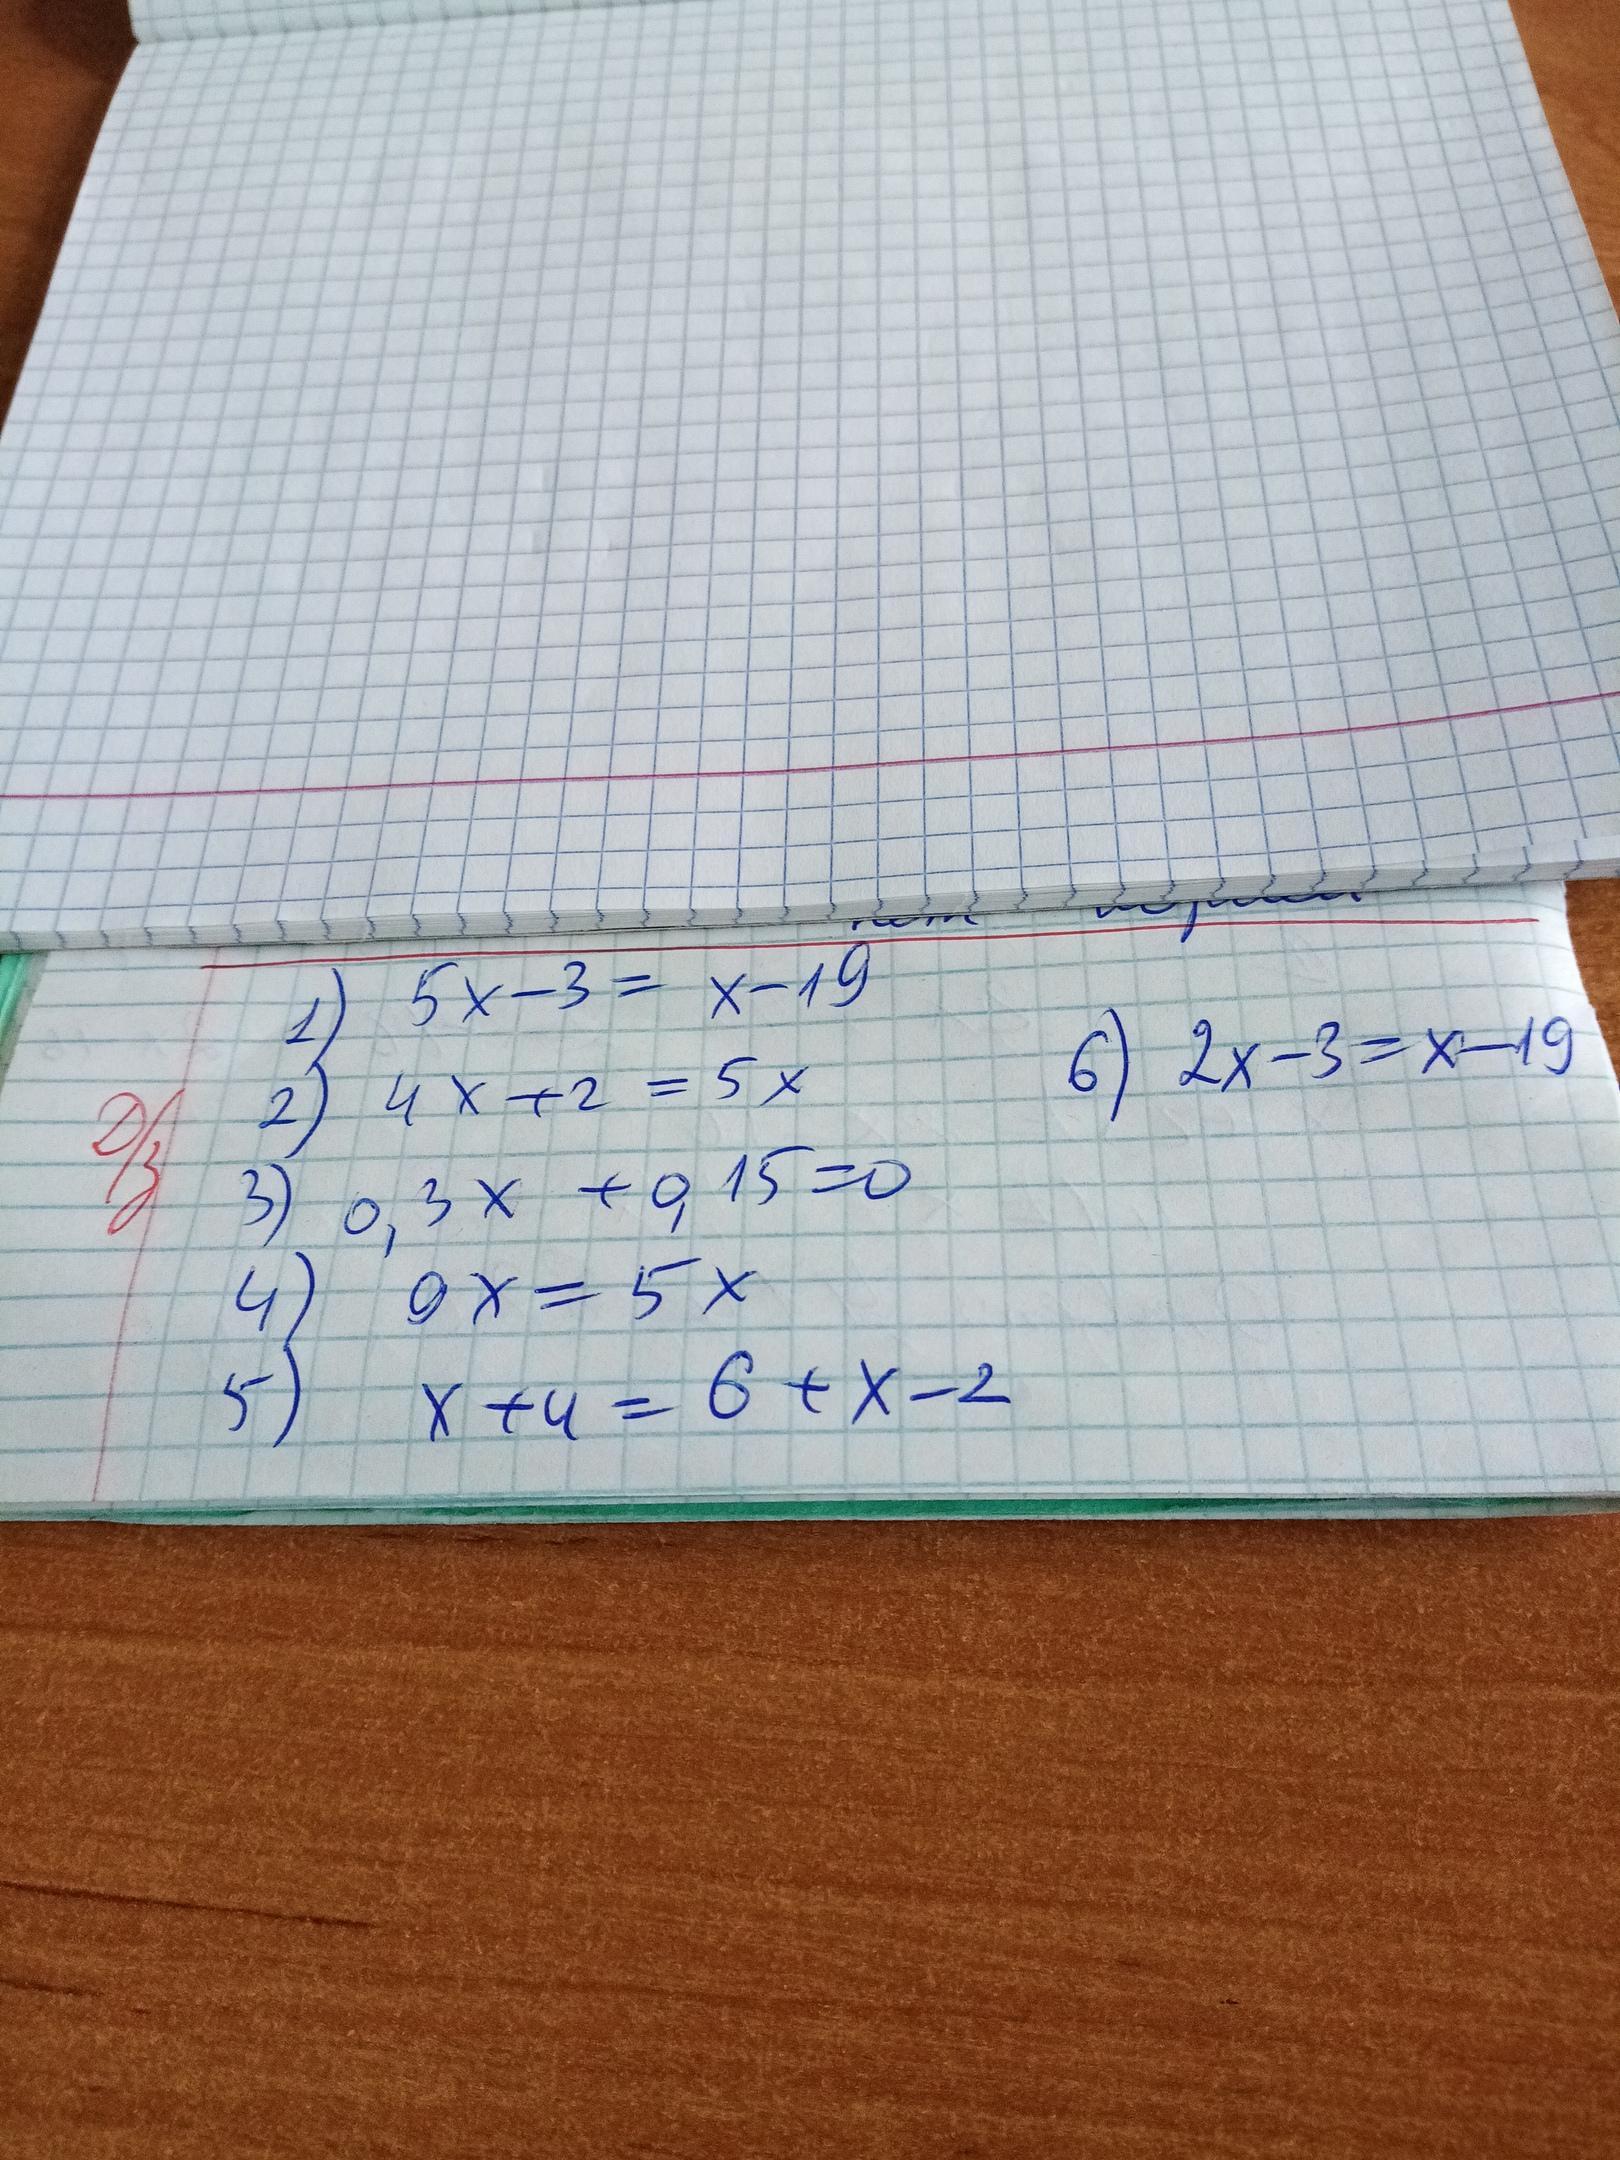 нет корней
1) 5x-3= x-19
6) 2x-3=x-19
2) 4x+2=5x
Д/з
3) 0,3x +0,15=0
4) 0x=5x
5) x+4=6+x-2